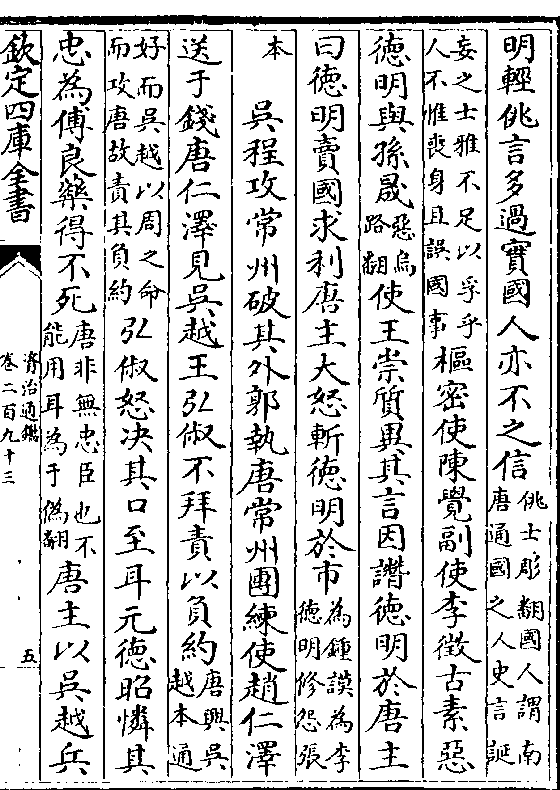 明輕佻言多過實國人亦不之信佻士彫翻國人謂南唐通國之人史言誕
妄之士雅不足以孚乎人不惟喪身且誤國事樞密使陳覺副使李徵古素惡
德明與孫晟惡烏路翻使王崇質異其言因譖德明於唐主
曰德明賣國求利唐主大怒斬德明於市為鍾謨為李德明修怨張
本　吳程攻常州破其外郭執唐常州團練使趙仁澤
送于錢唐仁澤見吳越王弘俶不拜責以負約唐興吳越本通
好而吳越以周之命而攻唐故責其負約弘俶怒決其口至耳元德昭憐其
忠為傅良藥得不死唐非無忠臣也不能用耳為于偽翻唐主以吳越兵
欽定四庫全書
資治通鑑
卷二百九十三
五